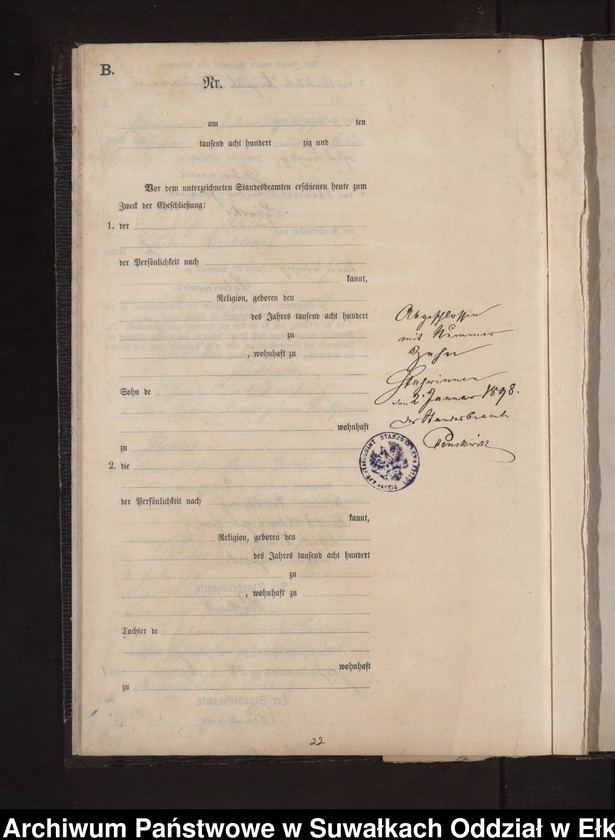 B.
Nr.
am ten
tausend acht hundert zig und
Vor dem unterzeichneten Standesbeamten erschienen heute zum
Zweck der Eheschließung:
1. der
der Persönlichkeit nach
kannt,
Religion, geboren den
des Jahres tausend acht hundert
zu
, wohnhaft zu
Sohn de
wohnhaft
zu
2. die
der Persönlichkeit nach
kannt,
Religion, geboren den
des Jahres tausend acht hundert
zu
, wohnhaft zu
Tochter de
wohnhaft
zu
Abgeschlossen
mit Nummer
Zehn
den 2 Januar 1898.
der Standesbeamte
22
Archiwum Państwowe w Suwałkach Oddział w Ełk